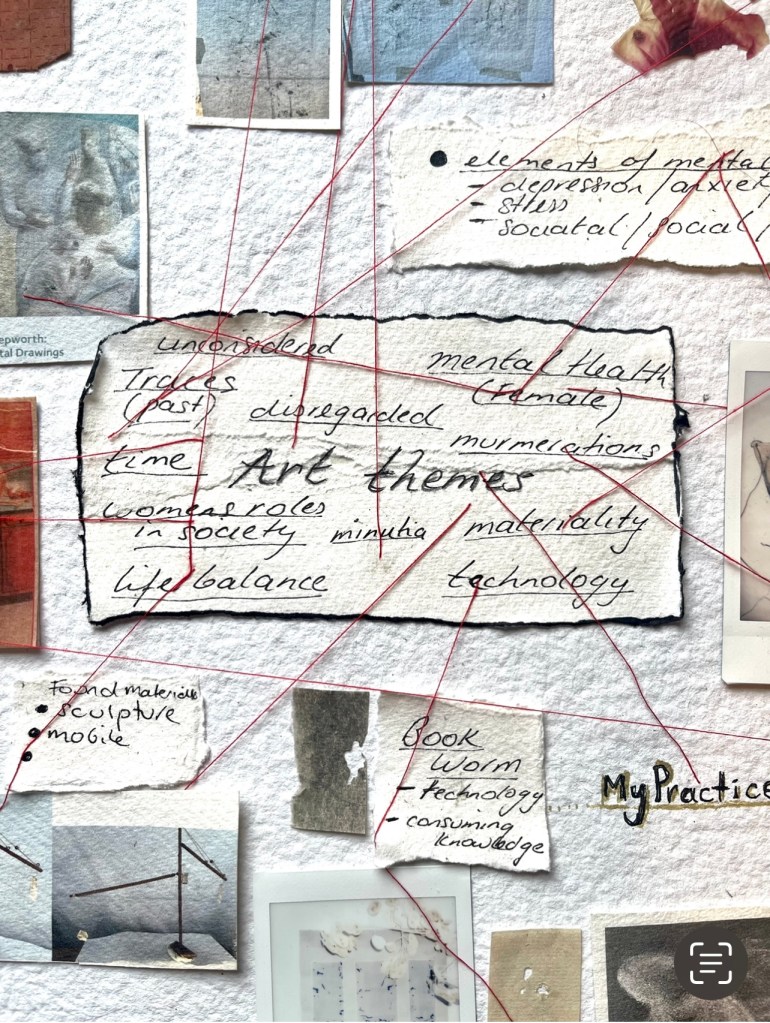 elements of mental
- depression/anxiet
- stress
- sociatal/social/
epworth:
tal Drawings
unconsidered
mental Health
(Female)
Traces
(past)
disregarded
murmerations
time
Art themes
womens roles
in society
minutia
materiality
life balance
technology
Found materials
• sculpture
• mobile
•
Book
Worm
- technology
- consuming
knowledge
My Practice